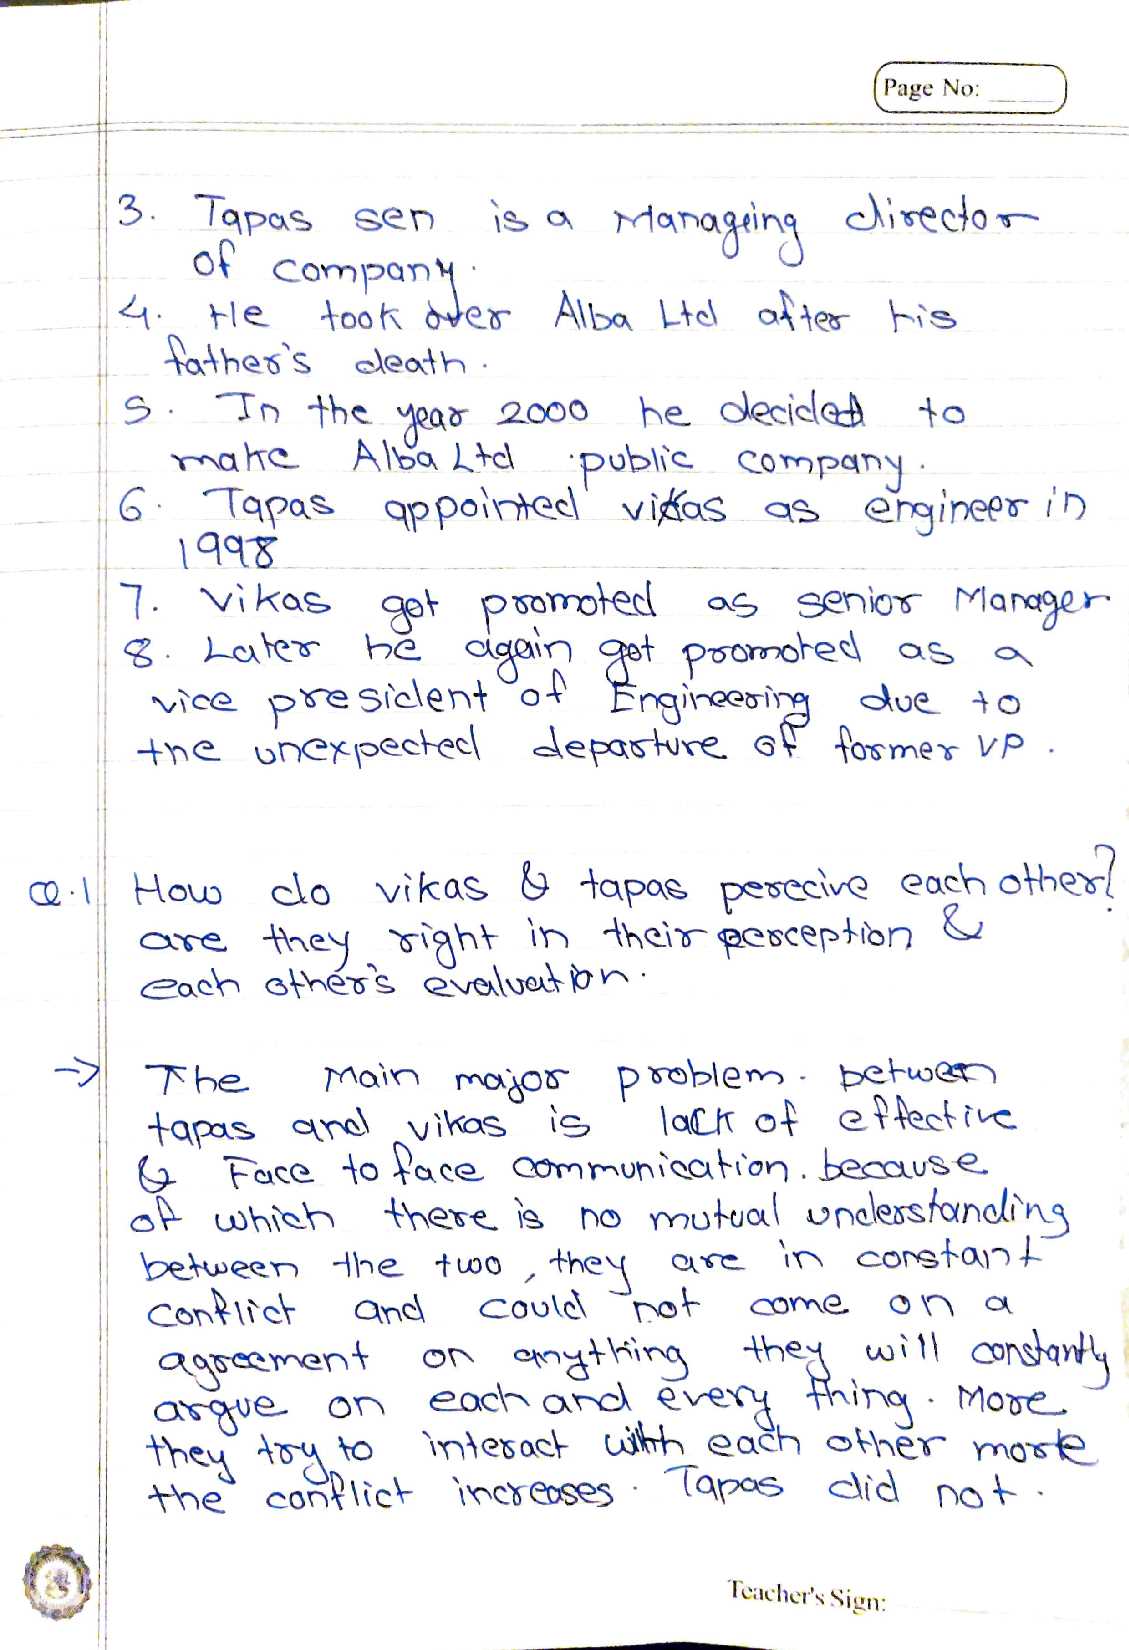 Page No:
3. Tapas sen is a Manageing director
of company.
4. He took over Alba Ltd after his
father's death.
5. In the year 2000 he decided to
make Alba Ltd public company.
6. Tapas appointed vikas as engineer in
1998
7. Vikas got promoted as senior Manager
8. Later he again got promoted as a
vice president of Engineering due to
the unexpected departure of former VP.
Q.1 How do vikas & tapas perecive each other?
are they right in their perception &
each other's evaluation.
→ The Main major problem. between
tapas and vikas is lack of effective
& Face to face communication. because
of which there is no mutual understanding
between the two, they are in constant
conflict and could not come on a
agreement on anything they will constantly
argue on each and every thing. More
they try to interact with each other more
the conflict increases. Tapas did not.
Teacher's Sign: